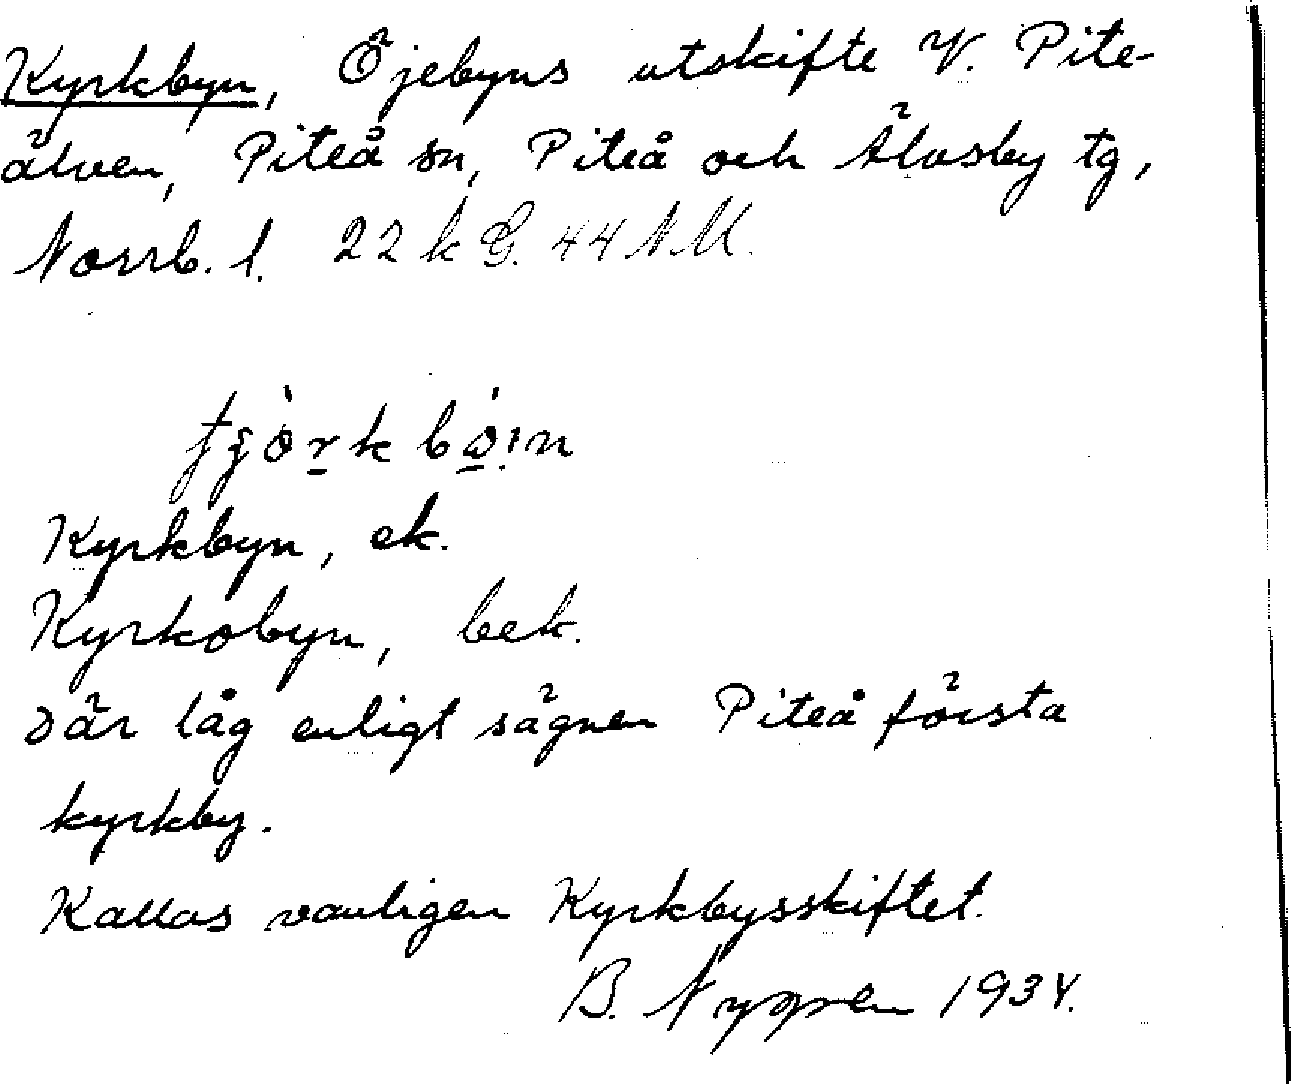 Kyrkbyn, Öjebyns utskifte V. Pite-
älven, Piteå sn, Piteå och Älvsby tg,
Norrb. l. 22 k G. 44 N M.
Kyrkbyn, ek.
Kyrkobyn, bek.
Där låg enligt sägnen Piteå första
kyrkby.
Kallas vanligen Kyrkbysskiftet.
B. Nygren 1934.